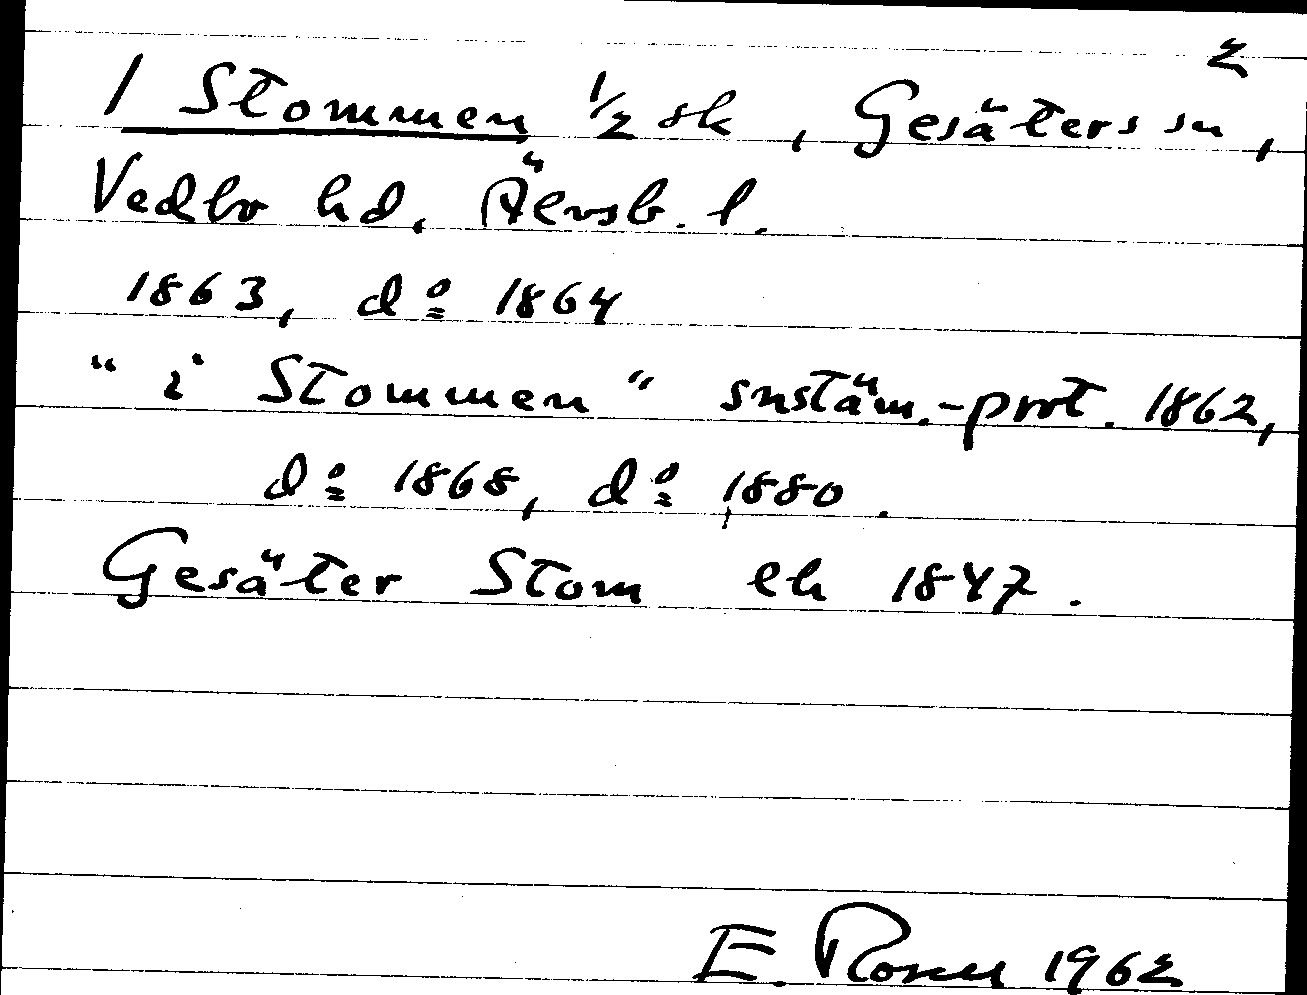 2
1 Stommen 1/2 sk, Gesäters sn,
Vedbo hd, Älvsb. l.
1863, dº 1864
"i Stommen" snstäm.-prot. 1862,
dº 1868, dº 1880.
Gesäter Stom eh 1847.
E. Rosell 1962